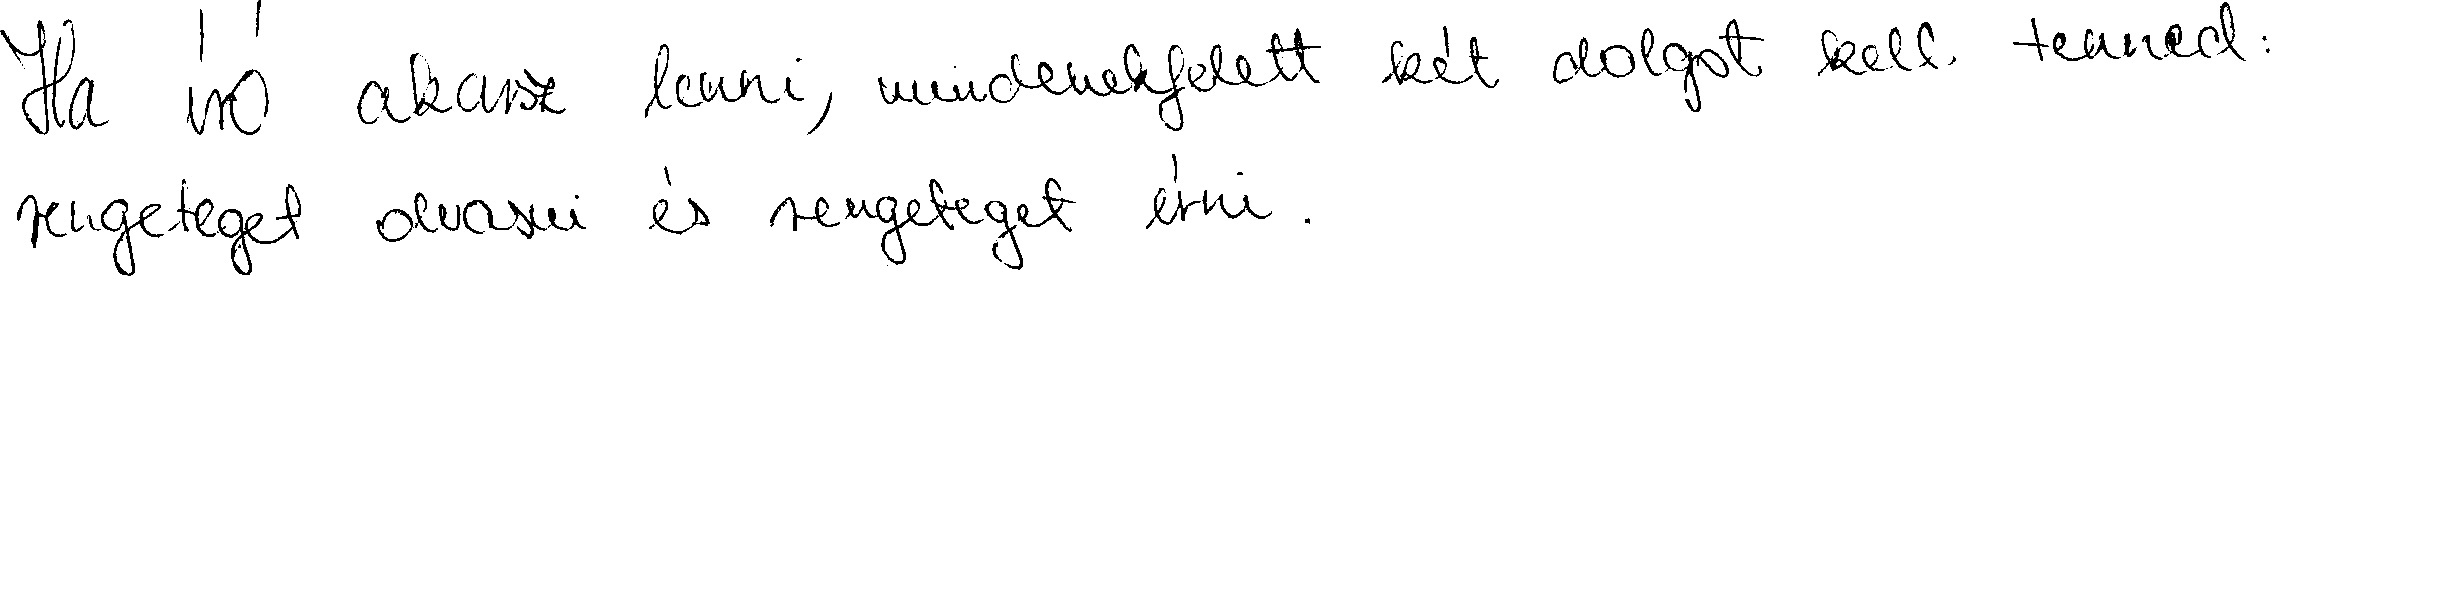 Ha író akarsz lenni, mindenekfelett két dolgot kell tenned:
rengeteget olvasni és rengeteget érni.